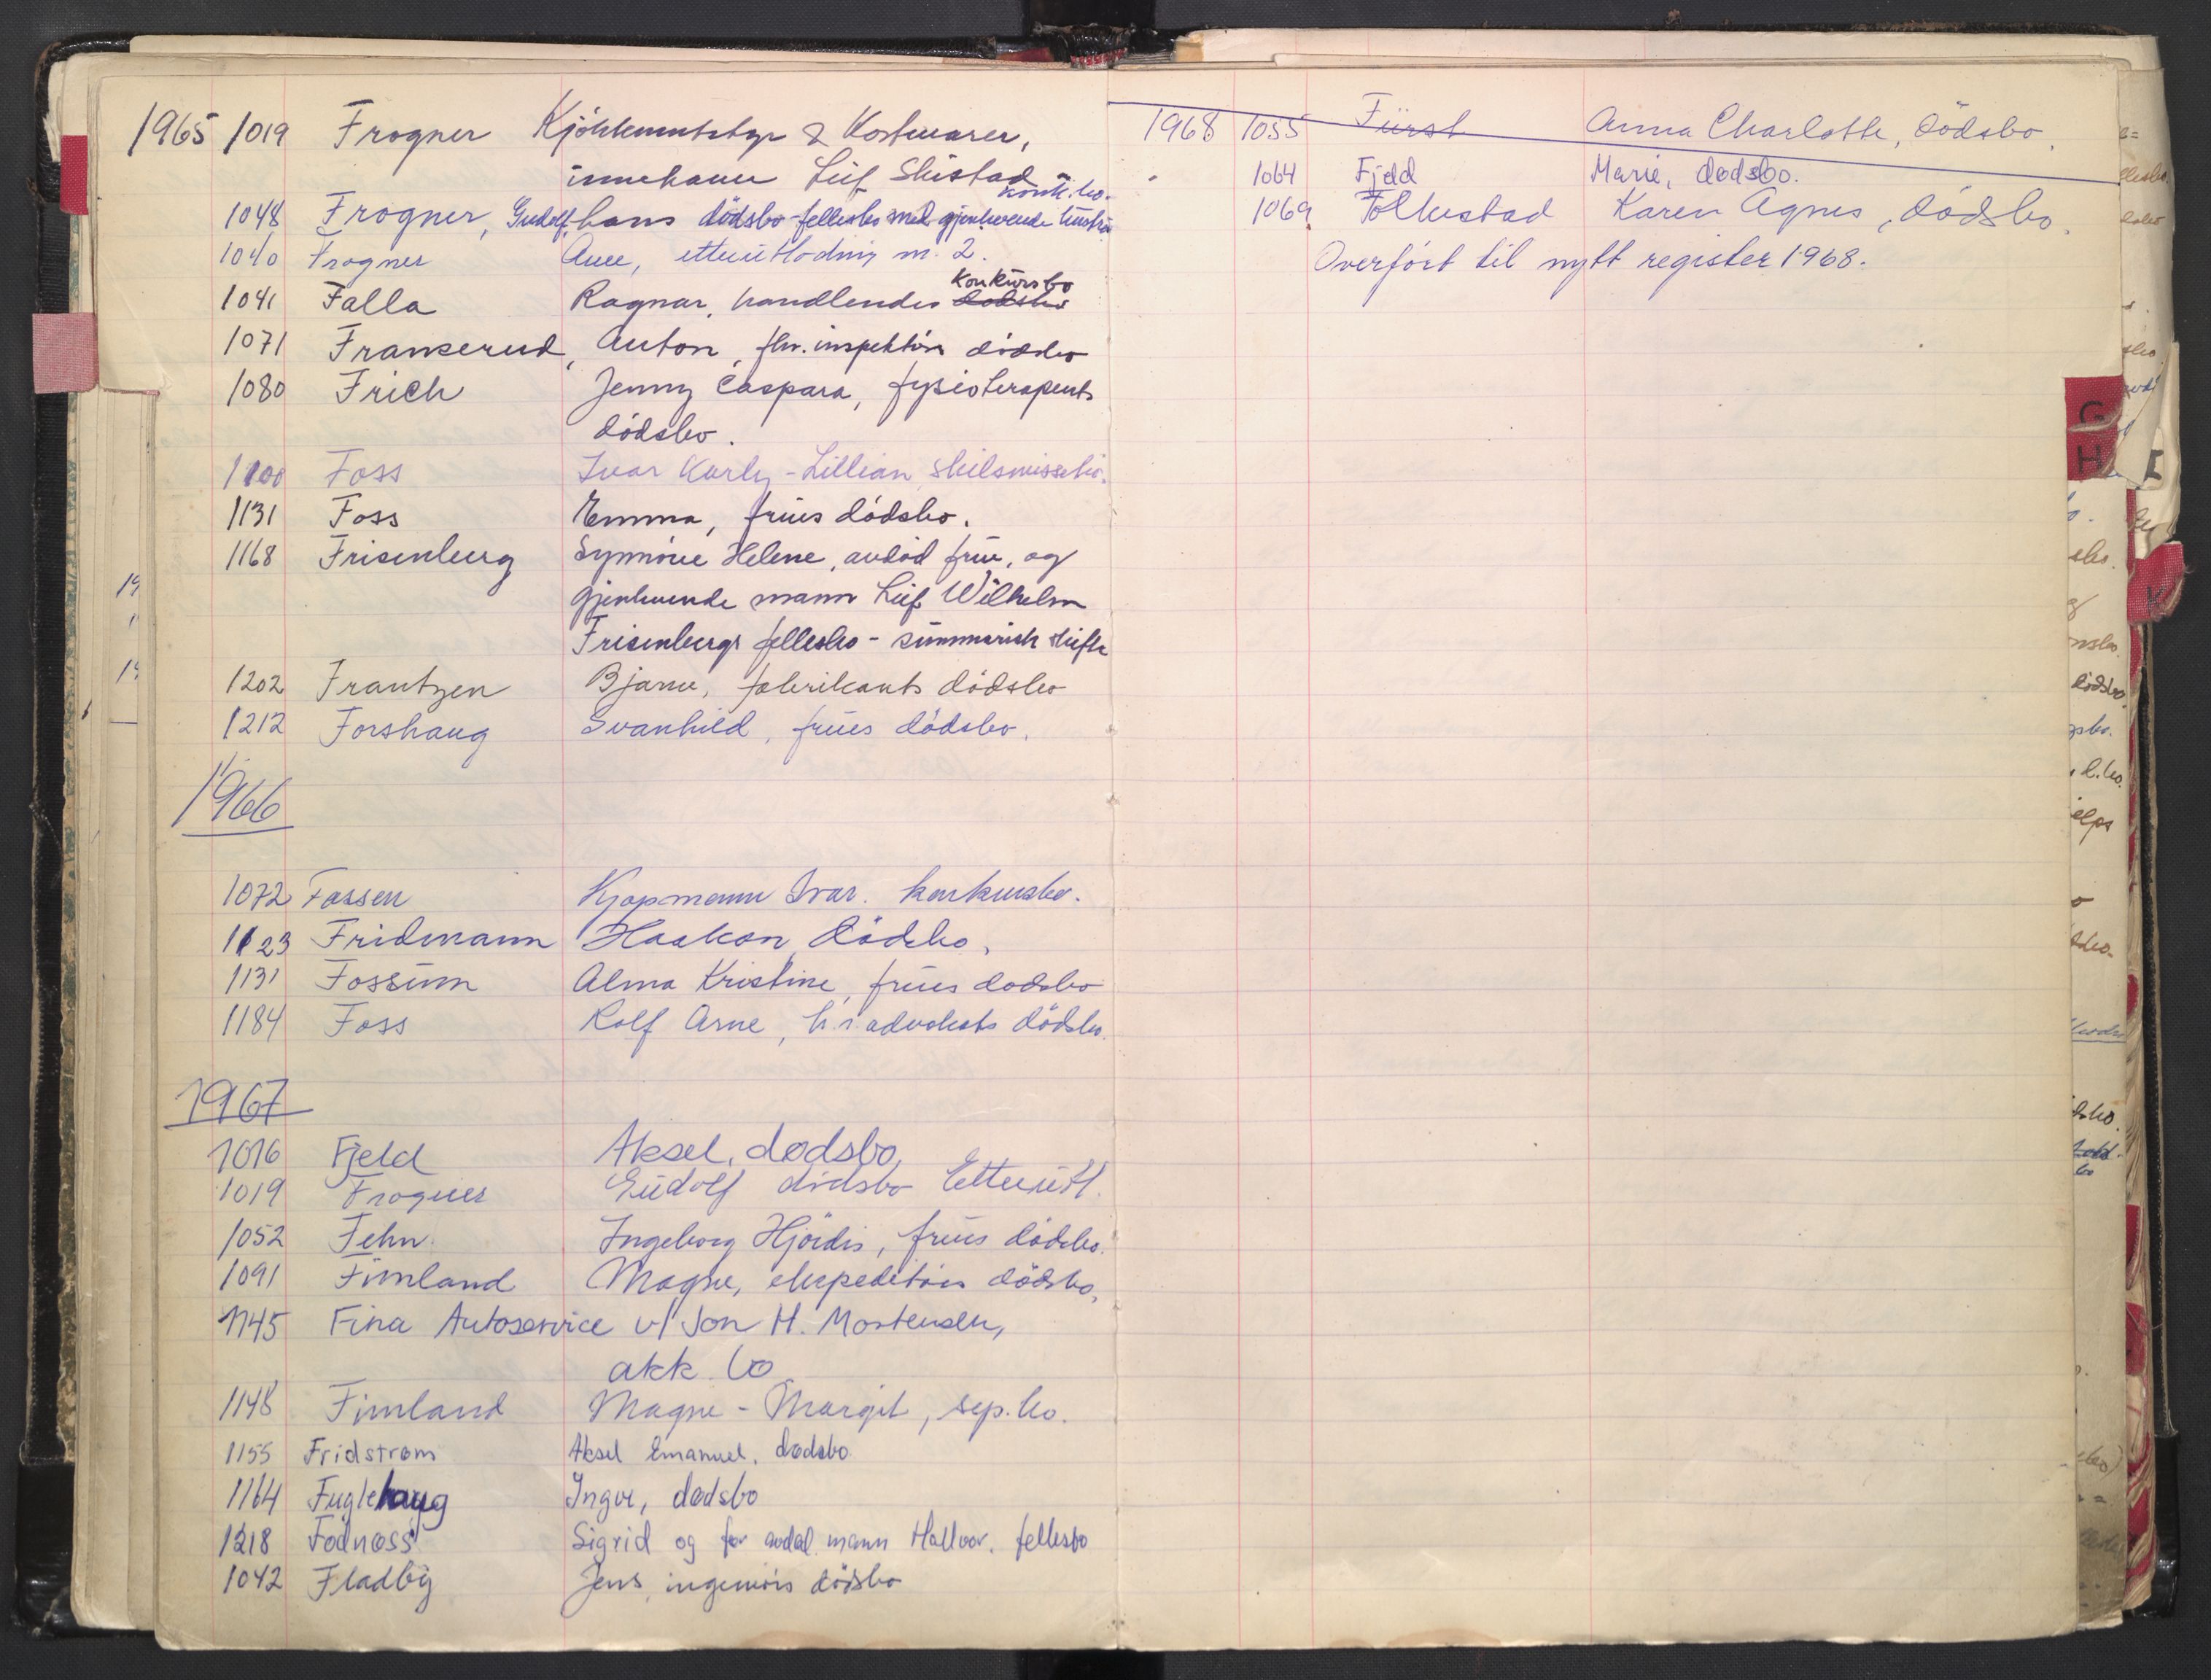 1965 1019 Frogner Kjökkenutstyr & Kostevarer,
innehaver Leif Skistad konk.bo.
1048 Frogner, Gudolf, hans dödsbo - fellesbo med gjenlevende hustru
1040 Frogner Aase, etterutlodning nr. 2.
1041 Falla Ragnar, handlendes dødsbo Konkursbo
1071 Franserud, Anton, fhv. inspektörs dödsbo
1080 Frich Jenny Caspara, fysioterapeuts
dödsbo.
1100 Foss Ivar Karly - Lillian skilsmissebo.
1131 Foss Emma, frues dödsbo.
1168 Frisenberg Synnöve Helene, avdöd frue, og
gjenlevende mann Leif Wilhelm
Frisenbergs fellesbo - summarisk skifte
1202 Frantzen Bjarne, fabrikants dödsbo
1212 Forshaug Svanhild, frues dödsbo.
1966
1072 Fassen Kjøpmann Ivar. konkursbo.
1123 Fridmann Haakon, dödsbo.
1131 Fossum Alma Kristine, frues dødsbo
1184 Foss Rolf Arne, h.r.advokats dödsbo.
1967
1016 Fjeld Aksel, dødsbo
1019 Frogner Gudolf dödsbo Etterutl.
1052 Fehn Ingeborg Hjördis, frues dödsbo.
1091 Fimland Magne, ekspeditörs dödsbo.
1145 Fina Autoservice v/ Jon H. Mortensen,
akk. bo
1148 Fimland Magne - Margit, sep.bo.
1155 Fridstrøm Aksel Emanuel, dødsbo
1164 Fuglehaug Ingve, dødsbo
1218 Fodnæss Sigrid og før avdød mann Hallvor. fellesbo
1042 Fladby Jens, ingeniörs dödsbo
1968 1055 Fürst Anna Charlotte, dödsbo.
1064 Fjeld Marie, dødsbo.
1069 Folkestad Karen Agnes, dödsbo.
Overfört til nytt register 1968.
G
H
I
K